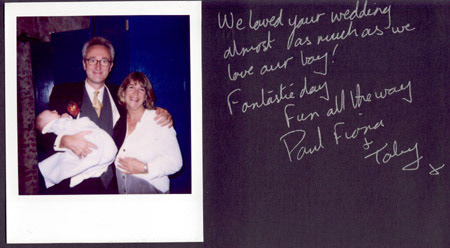 We loved your wedding
almost as much as we
love our boy!
Fantastic day
Fun all the way
Paul Fiona
+ Toby x